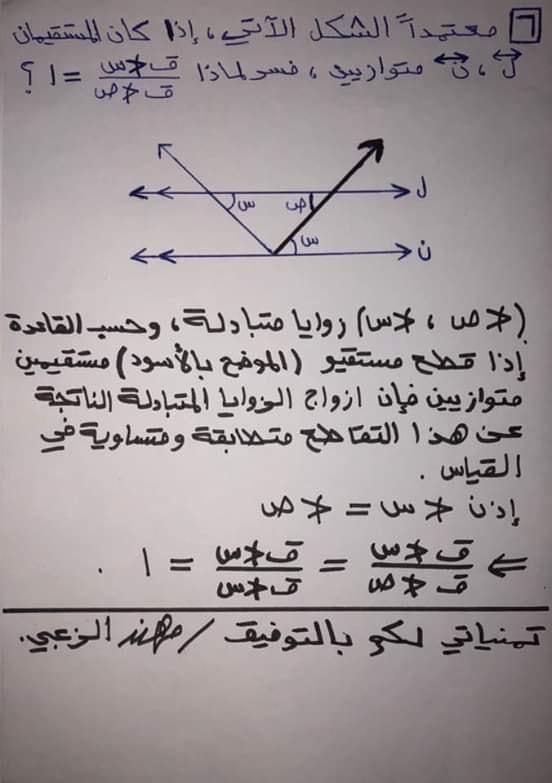 ٦ معتمداً الشكل الآتي، إذا كان المستقيمان
ل، ن متوازيين، فسر لماذا ق∡س / ق∡ص = ١ ؟
ل
س ص
س
ن
(∡ص ، ∡س) زوايا متبادلة، وحسب القاعدة
إذا قطع مستقيم (الموضح بالأسود) مستقيمين
متوازيين فإن ازواج الزوايا المتبادلة الناتجة
عن هذا التقاطع متطابقة ومتساوية في
القياس .
إذن ∡س = ∡ص
⇐ ق∡س / ق∡ص = ق∡س / ق∡س = ١ .
تمنياتي لكم بالتوفيق / مهند الزعبي.